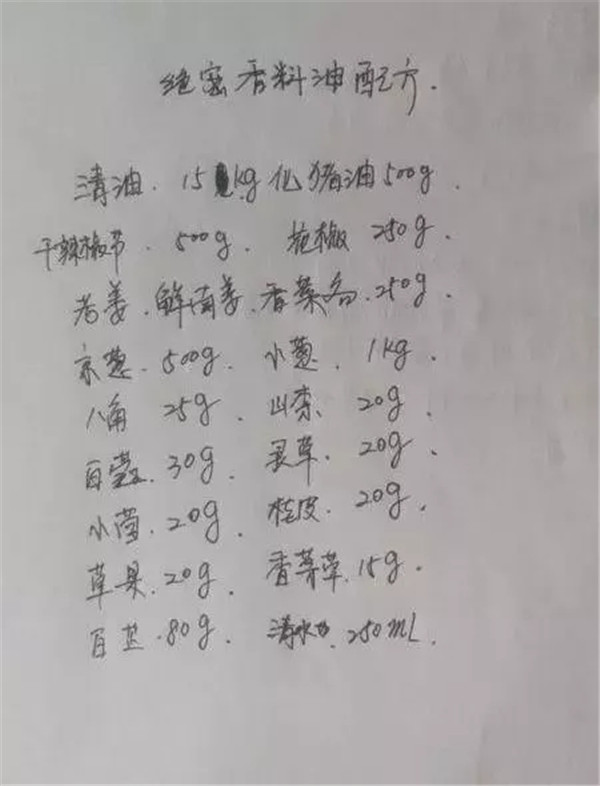 绝密香料油配方.
清油. 15kg 化猪油500g.
干辣椒节. 500g. 花椒 250g.
老姜.鲜南姜.香菜各.250g.
京葱.500g. 小葱. 1kg.
八角 25g. 山柰 20g.
白蔻.30g. 灵草.20g.
小茴.20g. 桂皮.20g.
草果.20g. 香茅草.15g.
白芷.80g. 清水.250mL.